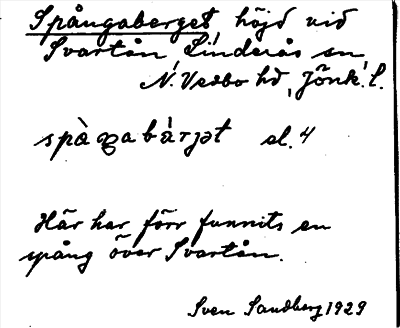 Spångaberget höjd vid
Svartån Linderås sn
N. Vedbo hd, Jönk. l.
spàŋabárjət al. 4
Här har förr funnits en
spång över Svartån.
Sven Sandberg 1929